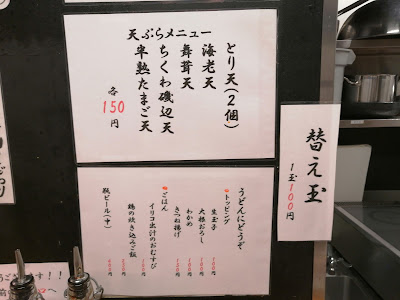 天ぷらメニュー
とり天(2個)
海老天
舞茸天
ちくわ磯辺天
半熟たまご天
各150円
替え玉
1玉100円
うどんにどうぞ
●トッピング
生玉子 100
大根おろし 100
わかめ 100
きつね揚げ 100
●ごはん
イリコ出汁のおむすび
鶏の炊き込みご飯
瓶ビール(中)